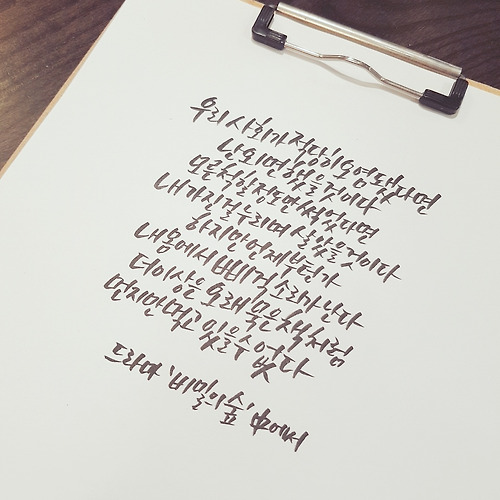 우리 사회가 적당히 오염됐다면
난 외면했을 것이다
모른척 할 정도만 썩었다면
내 가진 걸 누리며 살았을 것이다
하지만 언제부턴가
내 몸에서 삐걱 소리가 난다
더 이상은 오래 묵은 책처럼
먼지만 먹고 있을 수 없다
드라마 '비밀의 숲' 中에서